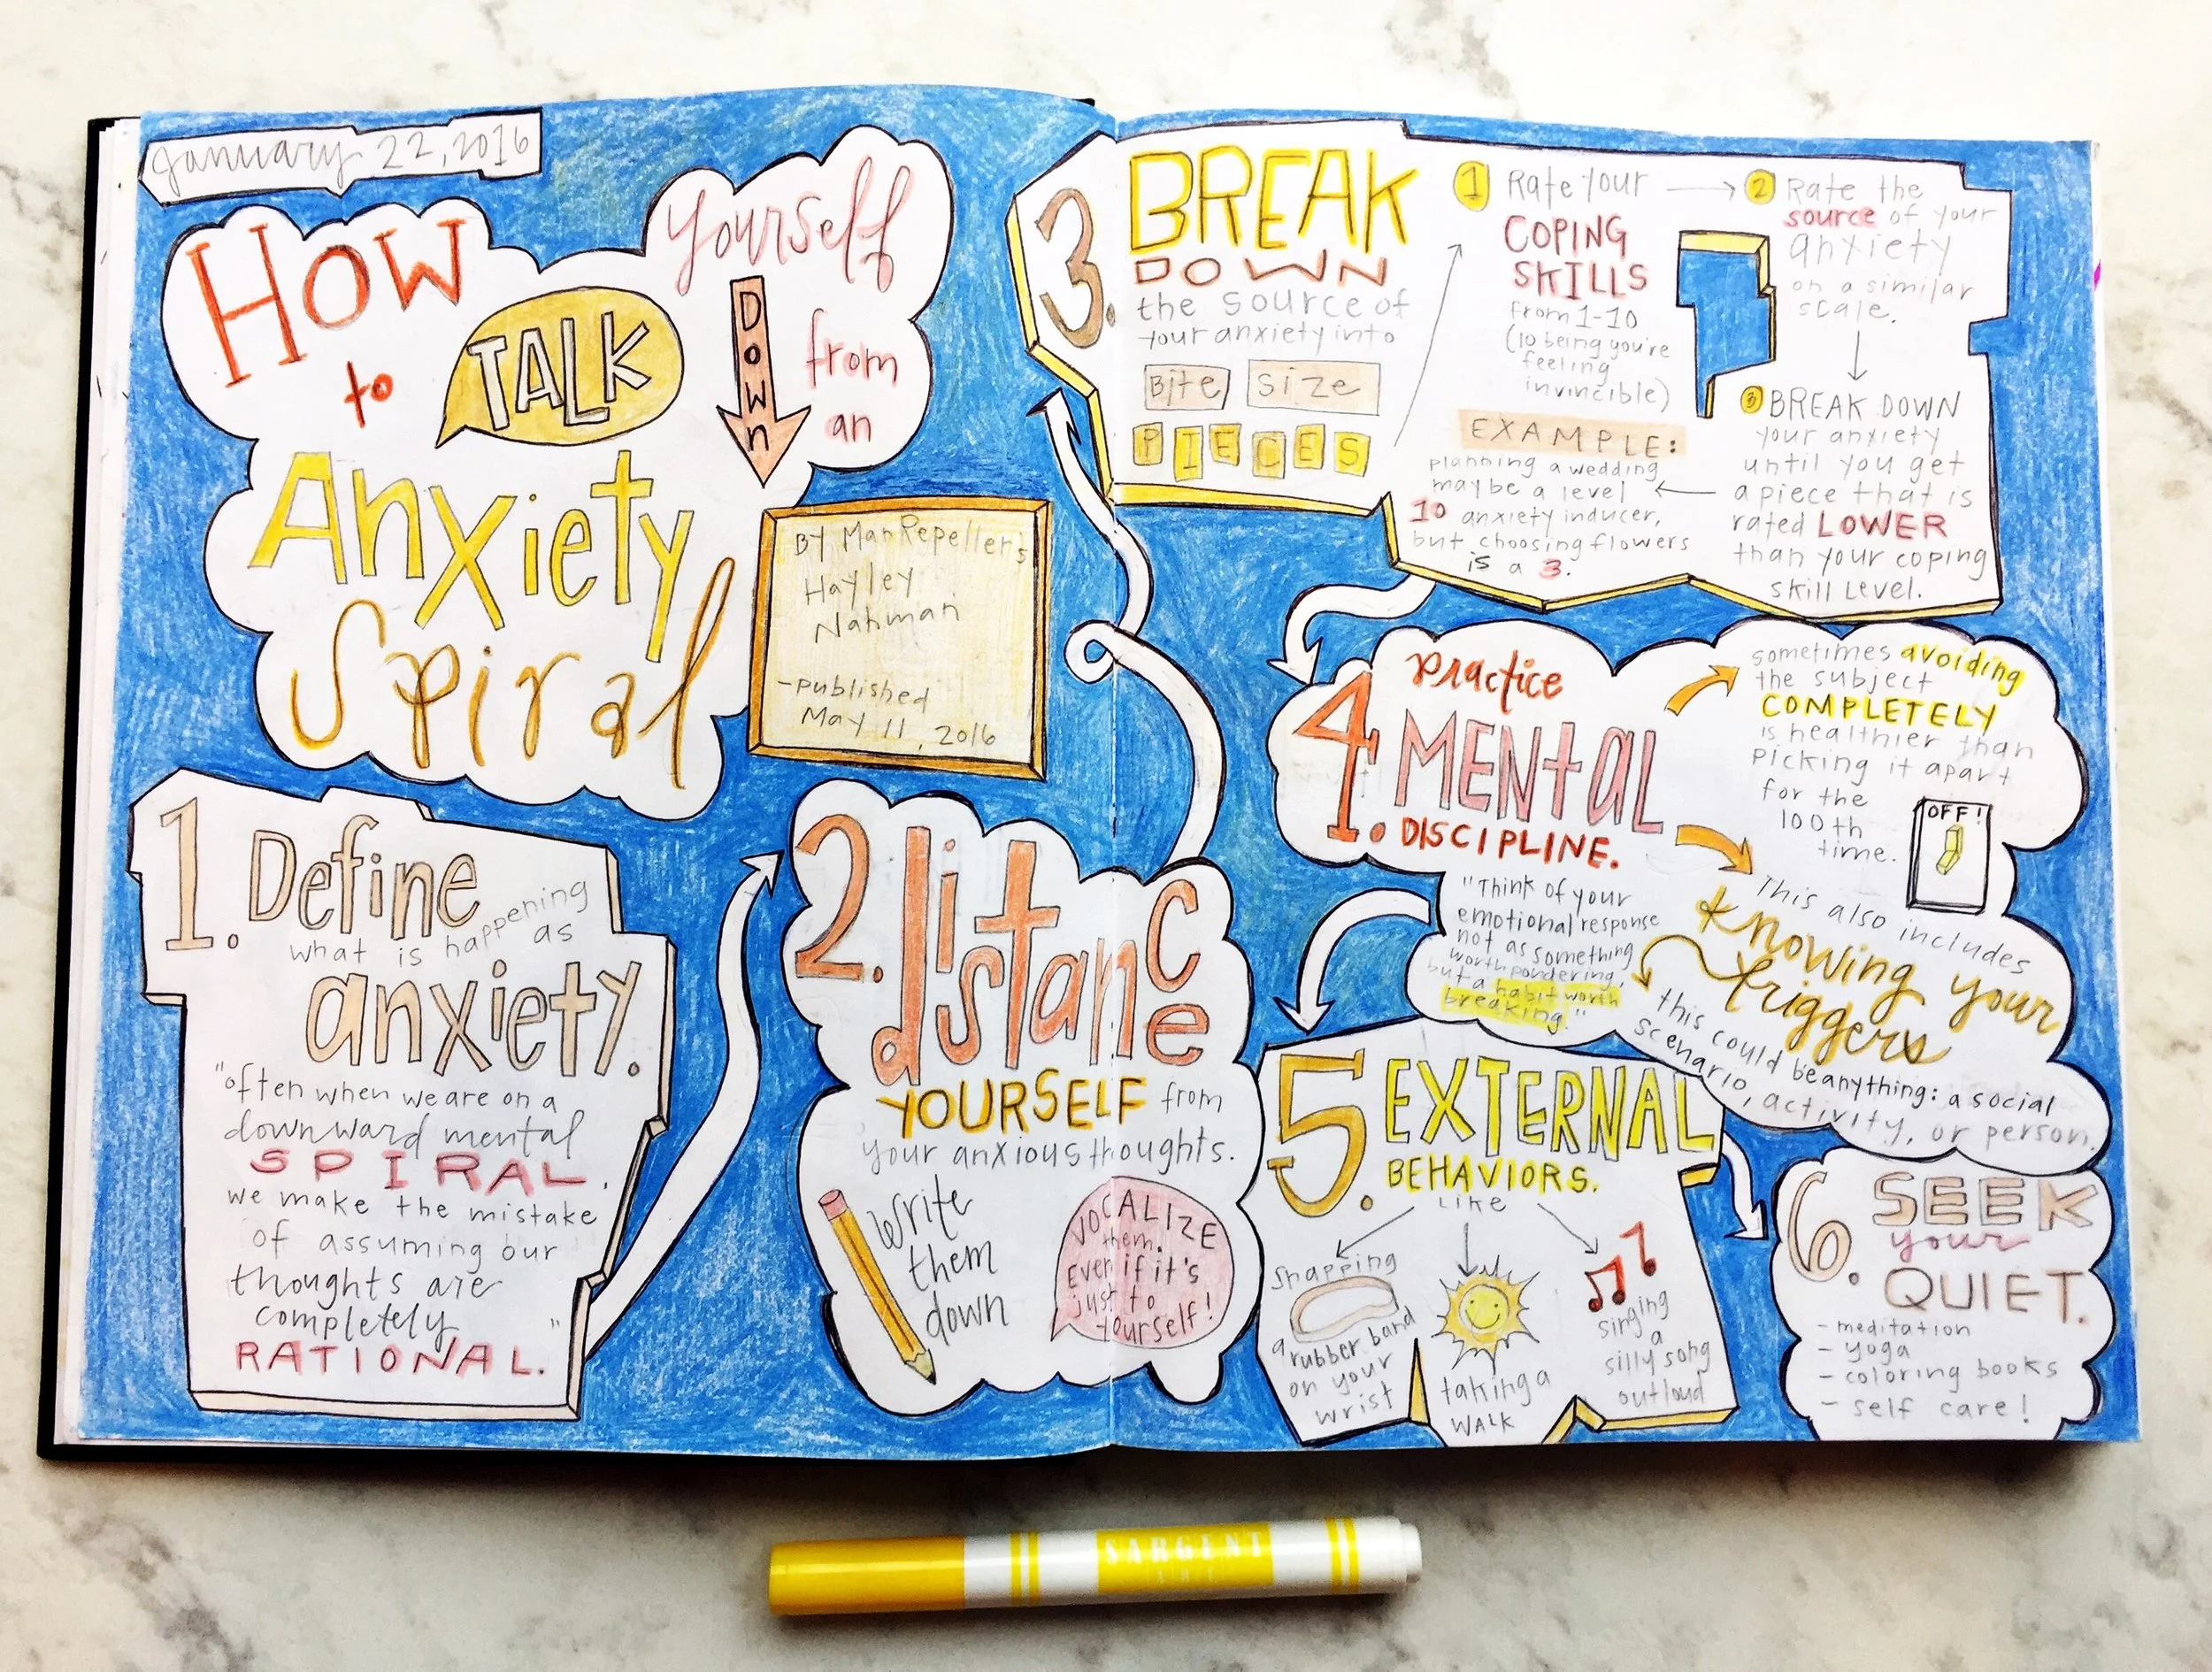 January 22, 2016
HOW
to
TALK
Yourself
DOWN
from
an
Anxiety
Spiral
BY Man Repeller's
Hayley
Nahman
-published
May 11, 2016
1. Define
what is happening
as
anxiety.
"often when we are on a
downward mental
SPIRAL,
we make the mistake
of assuming our
thoughts are
completely
RATIONAL."
2. distance
YOURSELF from
your anxious thoughts.
Write
them
down
VOCALIZE
them.
Even if it's
just to
yourself!
3. BREAK
DOWN
the source of
your anxiety into
Bite size
PIECES
1 Rate your
COPING
SKILLS
from 1-10
(10 being you're
feeling
invincible)
2 Rate the
source of your
anxiety
on a similar
scale.
3 BREAK DOWN
your anxiety
until you get
a piece that is
rated LOWER
than your coping
skill level.
EXAMPLE:
planning a wedding
maybe a level
10 anxiety inducer,
but choosing flowers
is a 3.
4. practice
MENtal
DISCIPLINE.
sometimes avoiding
the subject
COMPLETELY
is healthier than
picking it apart
for the
100th
time.
OFF!
"Think of your
emotional response
not as something
worth pondering,
but a habit worth
breaking."
This also includes
Knowing your
triggers
this could be anything: a social
scenario, activity, or person.
5. EXTERNAL
BEHAVIORS.
like
Snapping
a rubber band
on your
wrist
taking a
WALK
singing
a
silly song
outloud
6. SEEK
your
QUIET.
- meditation
- yoga
- coloring books
- self care!
SARGENT